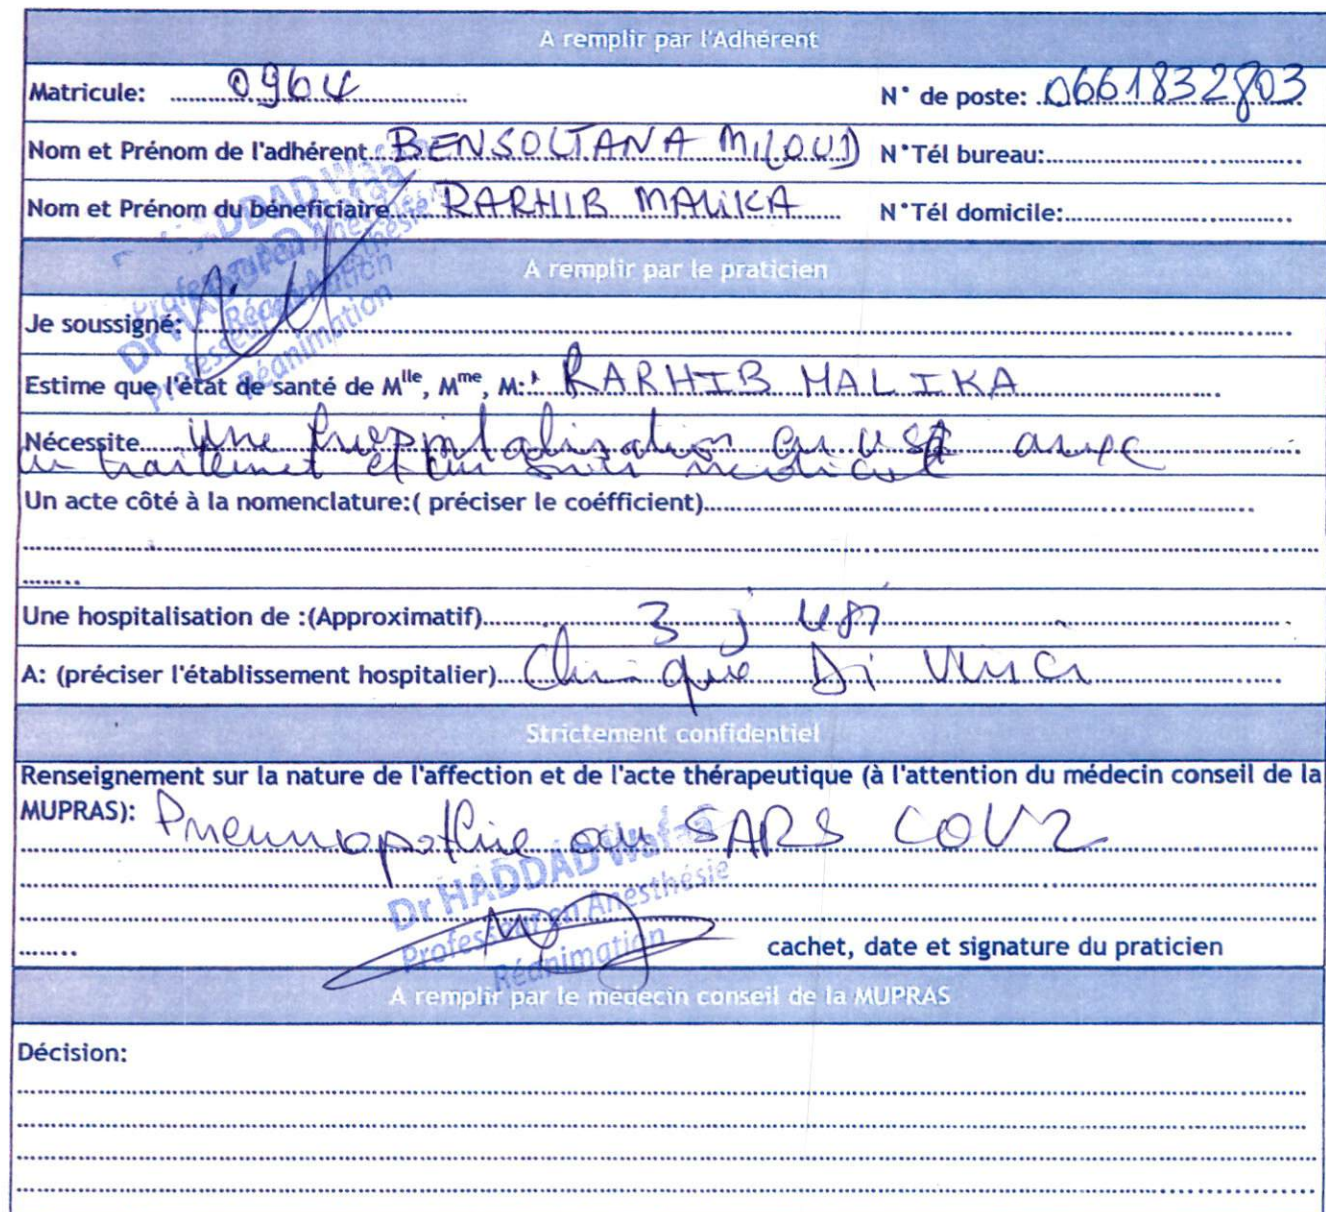 A remplir par l'Adhérent
Matricule: 0964 N° de poste: 0661832803
Nom et Prénom de l'adhérent BENSOLTANA MILOUD N°Tél bureau:
Nom et Prénom du béneficiaire RARHIB MALIKA N°Tél domicile:
Dr HADDAD Wafaa
Professeur en Anesthésie
Réanimation
A remplir par le praticien
Je soussigné:
Estime que l'état de santé de Mlle, Mme, M: RARHIB MALIKA
Nécessite une hospitalisation en USI avec
un traitement et un suivi médical
Un acte côté à la nomenclature:( préciser le coéfficient)
Une hospitalisation de :(Approximatif) 3 j USI
A: (préciser l'établissement hospitalier) Clinique Di Vinci
Strictement confidentiel
Renseignement sur la nature de l'affection et de l'acte thérapeutique (à l'attention du médecin conseil de la
MUPRAS): Pneumopathie au SARS COV2
Dr HADDAD Wafaa
Professeur en Anesthésie
Réanimation
cachet, date et signature du praticien
A remplir par le médecin conseil de la MUPRAS
Décision: